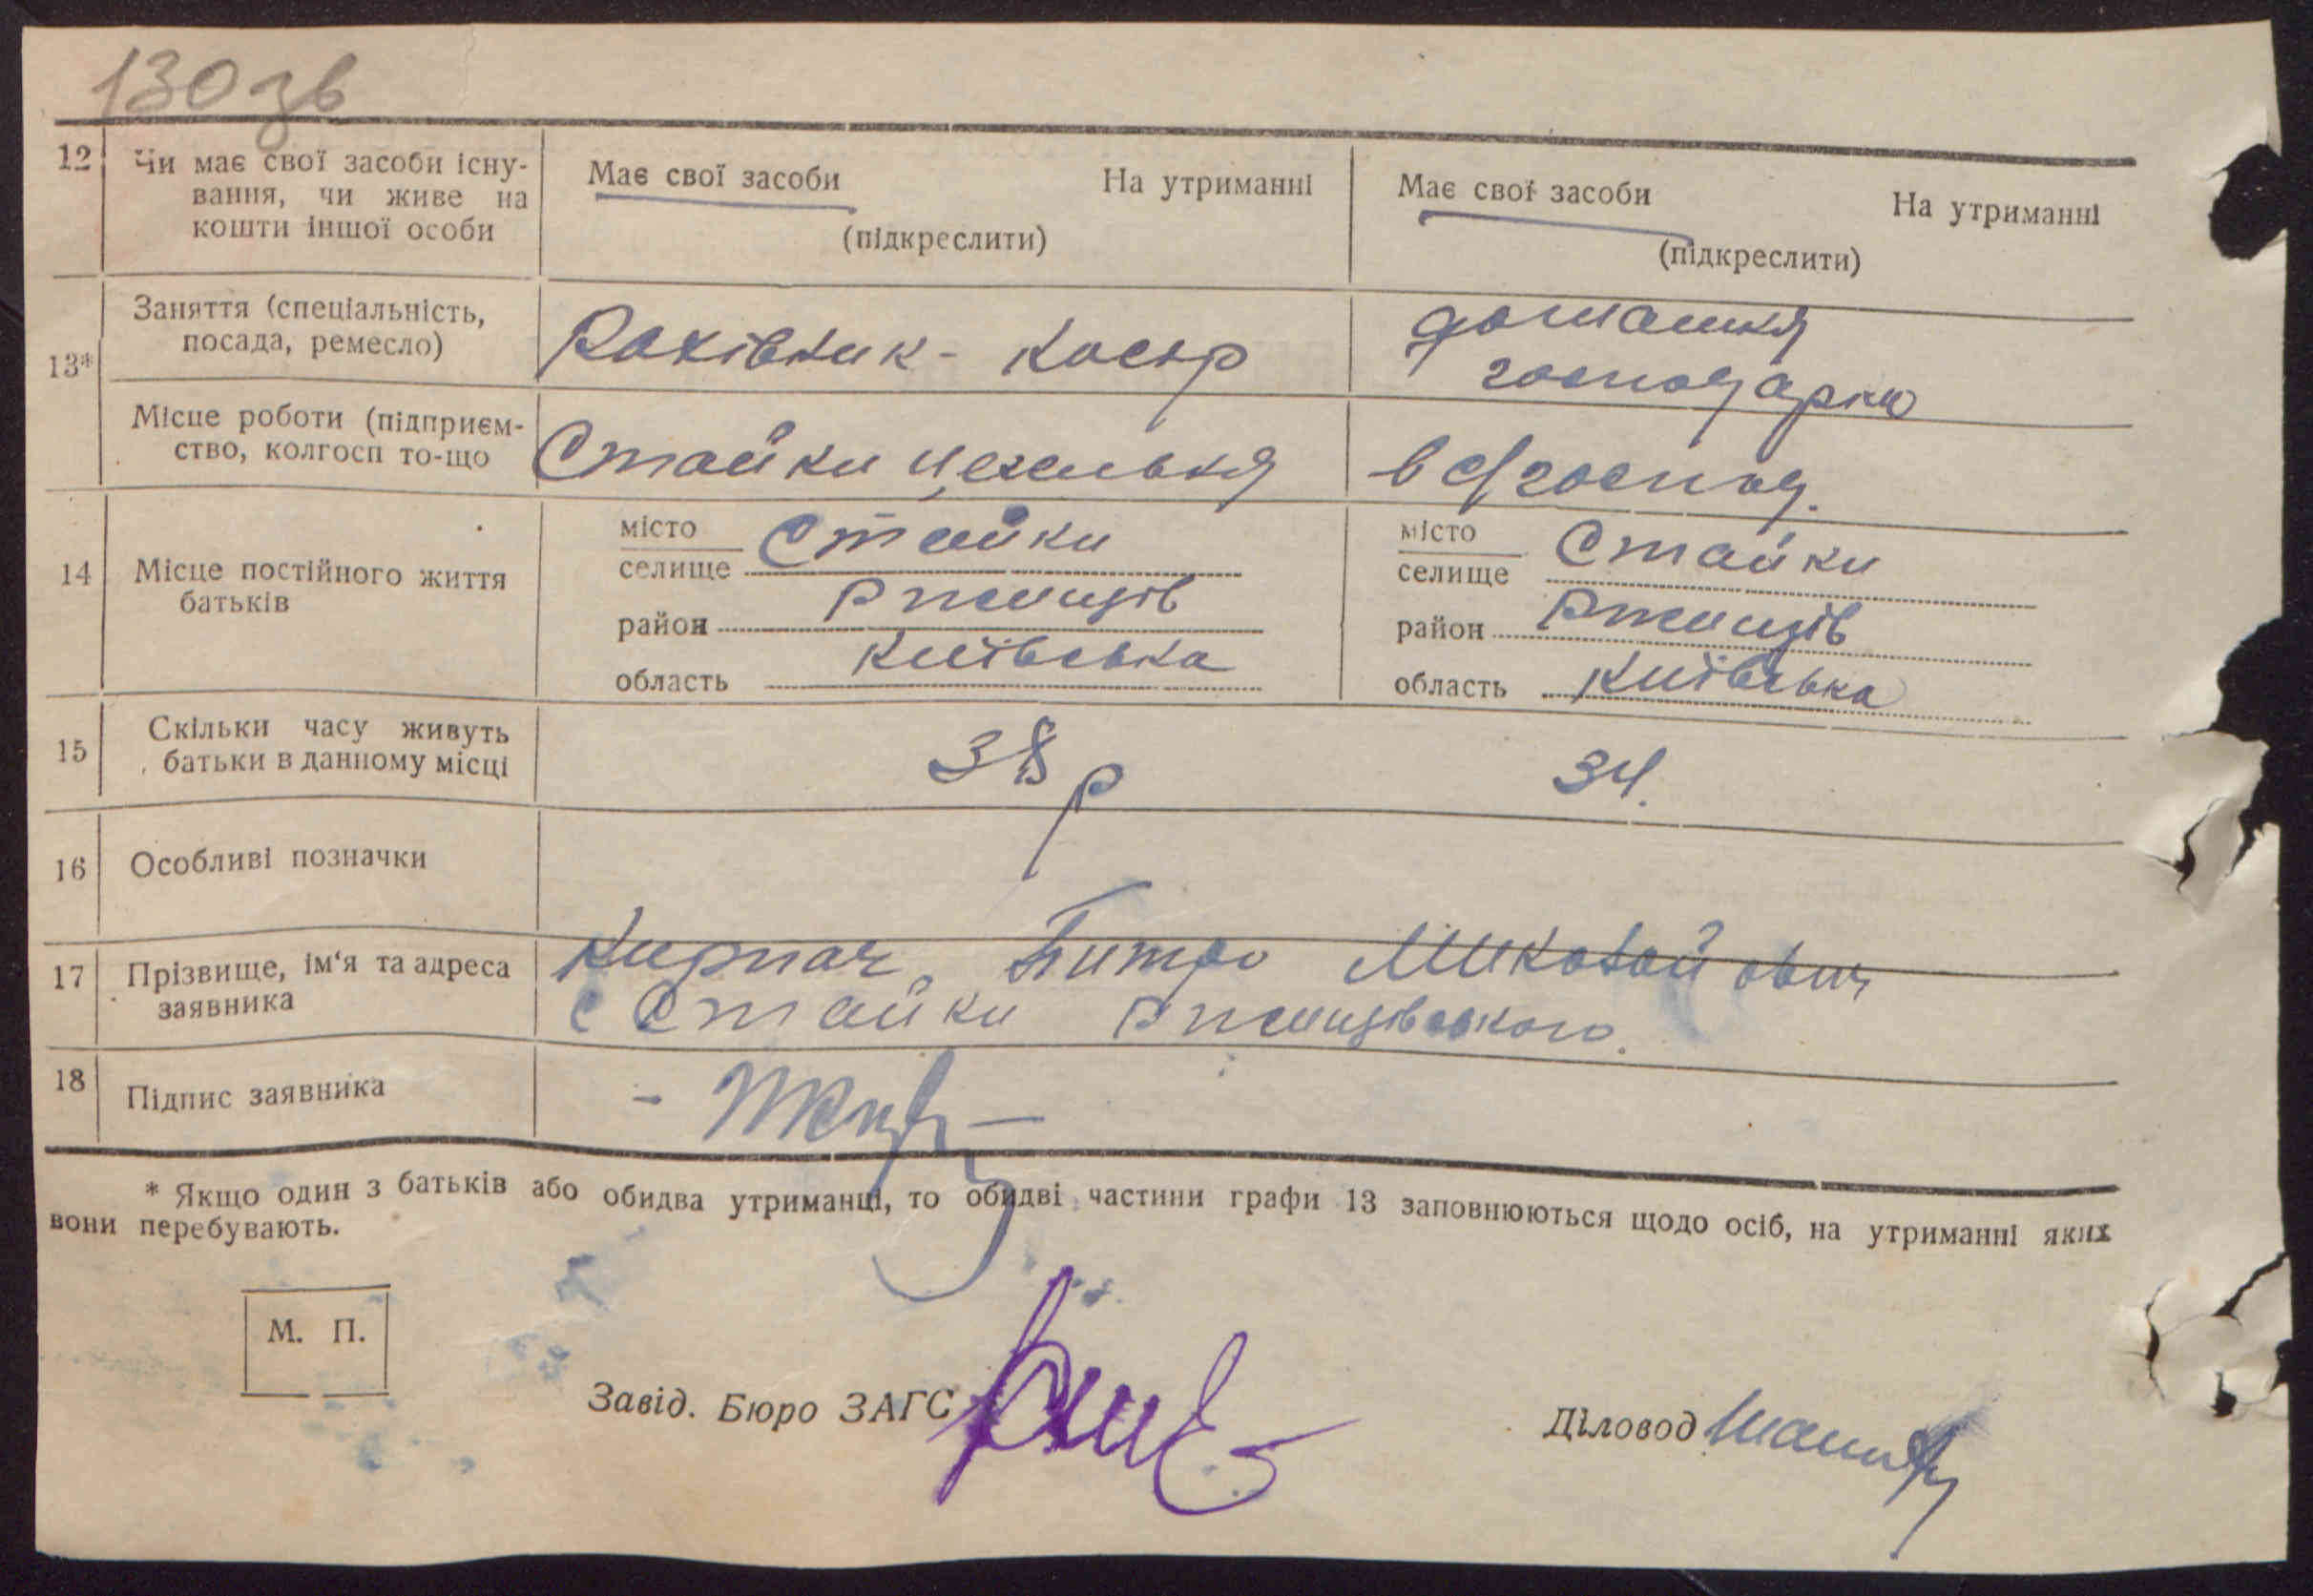 130 зв
12 Чи має свої засоби існу- Має свої засоби На утриманні Має свої засоби На утриманні
вання, чи живе на
кошти іншої особи (підкреслити) (підкреслити)
13* Заняття (спеціальність, Рахівник - касир домашня
посада, ремесло) господарка
Місце роботи (підприєм- Стайки цегельня в с/господ.
ство, колгосп то-що
14 Місце постійного життя місто Стайки місто Стайки
батьків селище селище
район Ржищів район Ржищів
область Київська область Київська
15 Скільки часу живуть 38 р 34.
батьки в данному місці
16 Особливі позначки
17 Прізвище, ім‘я та адреса Кирпач Миколайович
заявника с Стайки Ржищівського.
18 Підпис заявника
* Якщо один з батьків або обидва утриманці, то обидві частини графи 13 заповнюються щодо осіб, на утриманні яких
вони перебувають.
М. П.
Завід. Бюро ЗАГС
Діловод